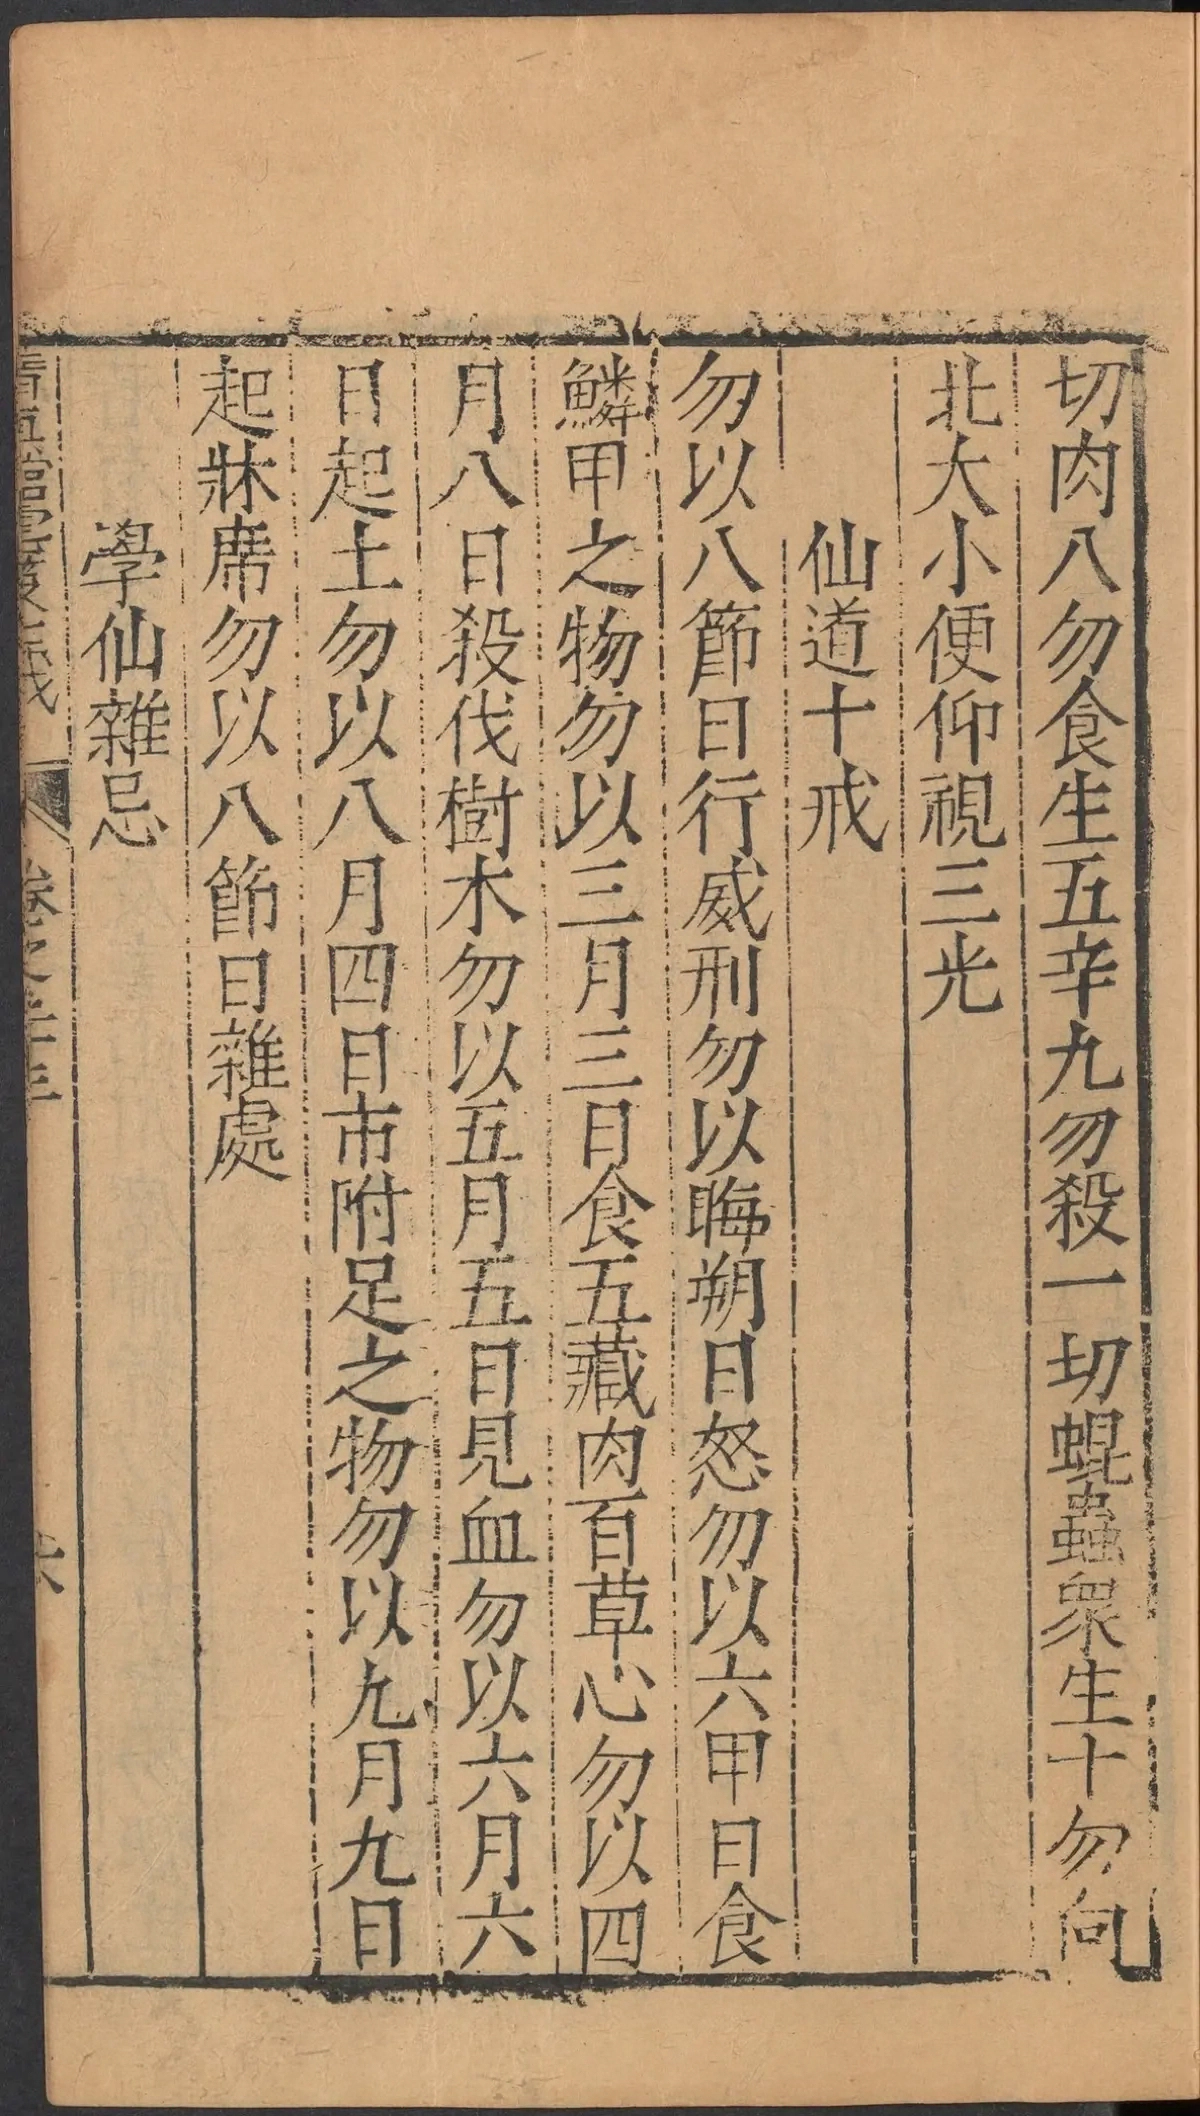 切肉八勿食生五辛九勿殺一切蜫蟲衆生十勿向
北大小便仰視三光
仙道十戒
勿以八節日行威刑勿以晦朔日怒勿以六甲日食
鱗甲之物勿以三月三日食五藏肉百草心勿以四
月八日殺伐樹木勿以五月五日見血勿以六月六
日起土勿以八月四日市附足之物勿以九月九日
起牀席勿以八節日雜處
學仙雜忌